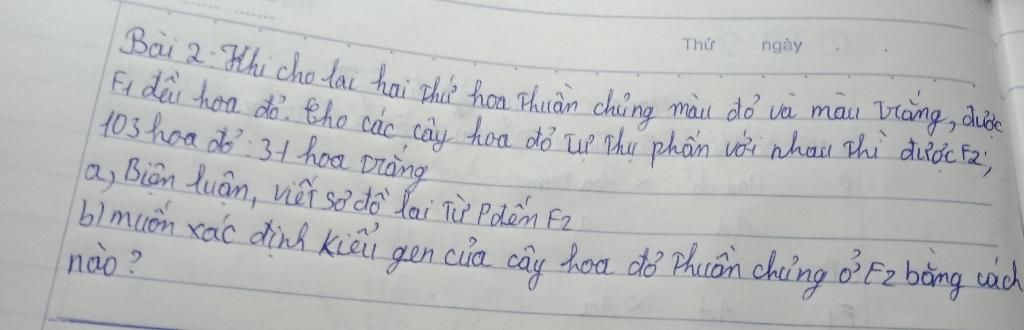 Thứ ngày . .
Bài 2. Khi cho lai hai thứ hoa thuần chủng màu đỏ và màu trắng, được
F1 đều hoa đỏ. Cho các cây hoa đỏ tự thụ phấn với nhau thì được F2:
103 hoa đỏ : 31 hoa trắng
a, Biện luận, viết sơ đồ lai từ P đến F2
b) muốn xác định kiểu gen của cây hoa đỏ thuần chủng ở F2 bằng cách
nào?